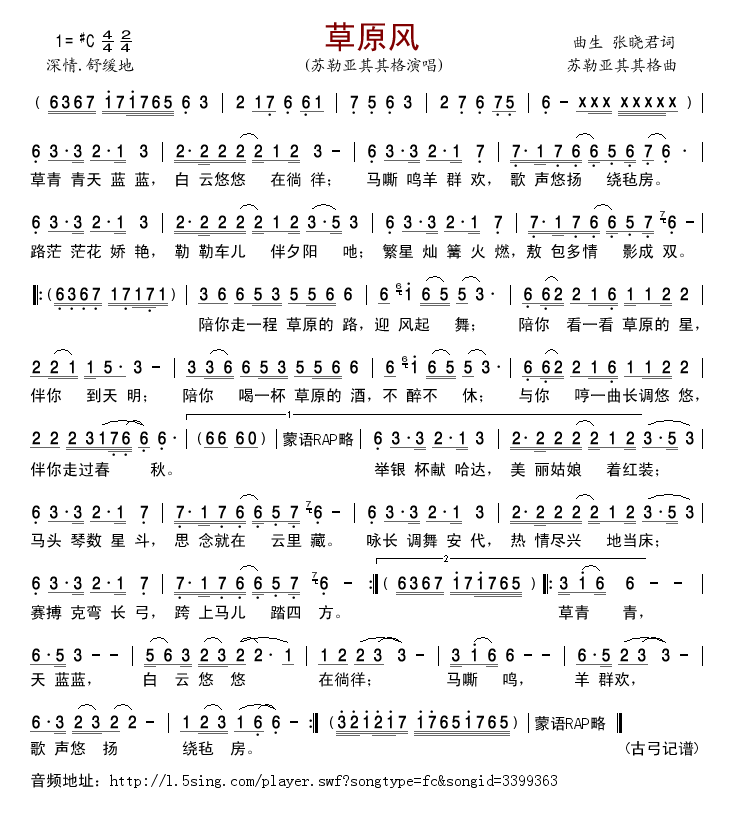 草原风
1=♯C 4/4 2/4
曲生 张晓君词
深情.舒缓地
(苏勒亚其其格演唱)
苏勒亚其其格曲
( 6367 171765 6 3 | 2 17 6 61 | 7 5 6 3 | 2 7 6 75 | 6 - xxx xxxxx )|
6 3·3 2·1 3 | 2·2 2 2 2 1 2 3 - | 6 3·3 2·1 7 | 7·1 7 6 6 5 6 7 6 · |
草青 青天 蓝 蓝， 白 云悠悠 在徜 徉； 马嘶 鸣羊 群 欢， 歌 声悠扬 绕毡房。
6 3·3 2·1 3 | 2·2 2 2 2 1 2 3·5 3 | 6 3·3 2·1 7 | 7·1 7 6 6 5 7 7 6 - |
路茫 茫花 娇 艳， 勒 勒车儿 伴夕阳 吔； 繁星 灿篝 火 燃，敖 包多情 影成 双。
‖:( 6367 17171 )| 3 6 6 5 3 5 5 6 6 | 6 6 1 6 5 5 3 · | 6 6 2 2 1 6 1 1 2 2 |
陪你走一程 草原的 路，迎 风起 舞； 陪你 看一看 草原的 星，
2 2 1 1 5· 3 - | 3 3 6 6 5 3 5 5 6 6 | 6 6 1 6 5 5 3 · | 6 6 2 2 1 6 1 1 2 2 |
伴你 到天 明； 陪你 喝一杯 草原的 酒，不 醉不 休； 与你 哼一曲长调悠 悠，
1
2 2 2 3 1 7 6 6 6· |(66 60)| 蒙语RAP略 | 6 3·3 2·1 3 | 2·2 2 2 2 1 2 3·5 3 |
伴你走过春 秋。 举银 杯献 哈达， 美 丽姑娘 着红装；
6 3·3 2·1 7 | 7·1 7 6 6 5 7 7 6 - | 6 3·3 2·1 3 | 2·2 2 2 2 1 2 3·5 3 |
马头 琴数 星 斗， 思 念就在 云里 藏。 咏长 调舞 安 代， 热 情尽兴 地当床；
2
6 3·3 2·1 7 | 7·1 7 6 6 5 7 7 6 - :‖( 6367 171765 )‖: 3 1 6 6 - |
赛搏 克弯 长 弓， 跨 上马儿 踏四 方。 草青 青，
6·5 3 - - | 5 6 3 2 3 2 2·1 | 1 2 2 3 3 - | 3 1 6 6 - - | 6·5 3 3 - |
天 蓝蓝， 白 云 悠 悠 在徜徉； 马嘶 鸣， 羊 群欢，
6·3 2 3 2 2 - | 1 2 3 1 6 6 - :‖( 321217 17651765 )| 蒙语RAP略 ‖
歌 声悠 扬 绕毡 房。 (古弓记谱)
音频地址：http://l.5sing.com/player.swf?songtype=fc&songid=3399363